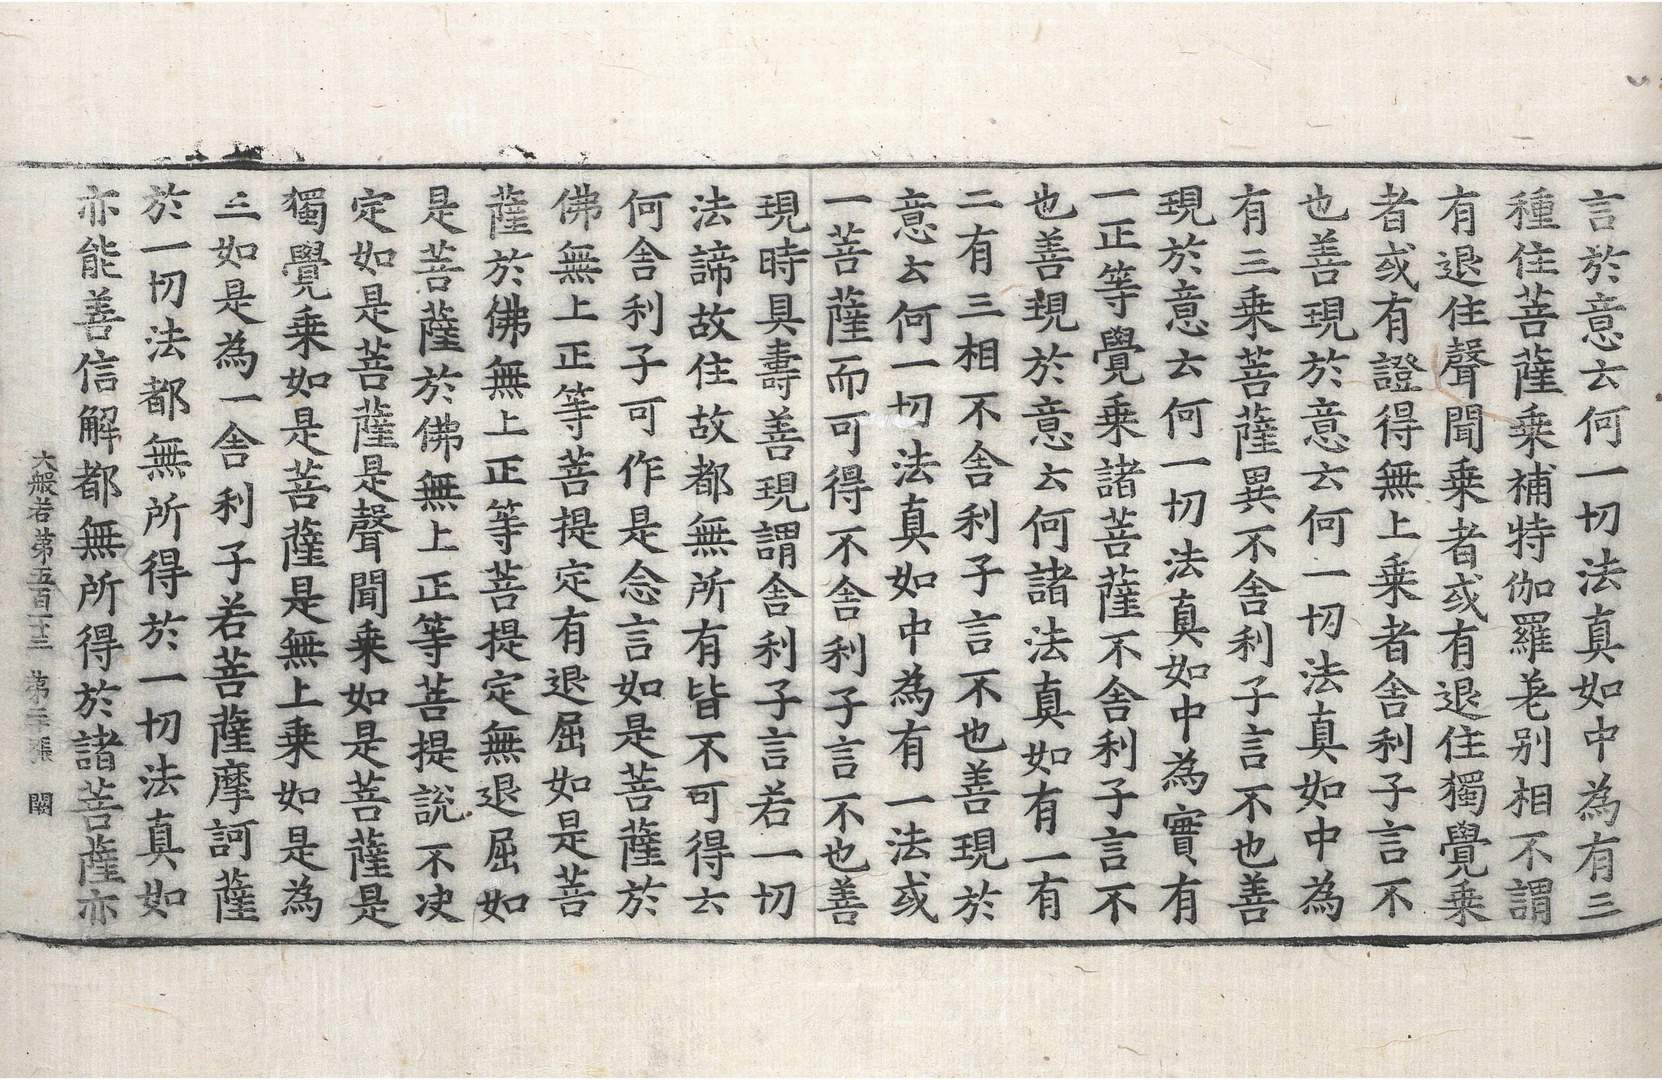 言於意云何一切法真如中為有三
種住菩薩乗補特伽羅差别相不謂
有退住聲聞乗者或有退住獨覺乗
者或有證得無上乗者舍利子言不
也善現於意云何一切法真如中為
有三乗菩薩異不舍利子言不也善
現於意云何一切法真如中為實有
一正等覺乗諸菩薩不舍利子言不
也善現於意云何諸法真如有一有
二有三相不舍利子言不也善現於
意云何一切法真如中為有一法或
一菩薩而可得不舍利子言不也善
現時具壽善現謂舍利子言若一切
法諦故住故都無所有皆不可得云
何舍利子可作是念言如是菩薩於
佛無上正等菩提定有退屈如是菩
薩於佛無上正等菩提定無退屈如
是菩薩於佛無上正等菩提說不决
定如是菩薩是聲聞乗如是菩薩是
獨覺乗如是菩薩是無上乗如是為
三如是為一舍利子若菩薩摩訶薩
於一切法都無所得於一切法真如
亦能善信解都無所得於諸菩薩亦
大般若第五百十三 第二十張 闌